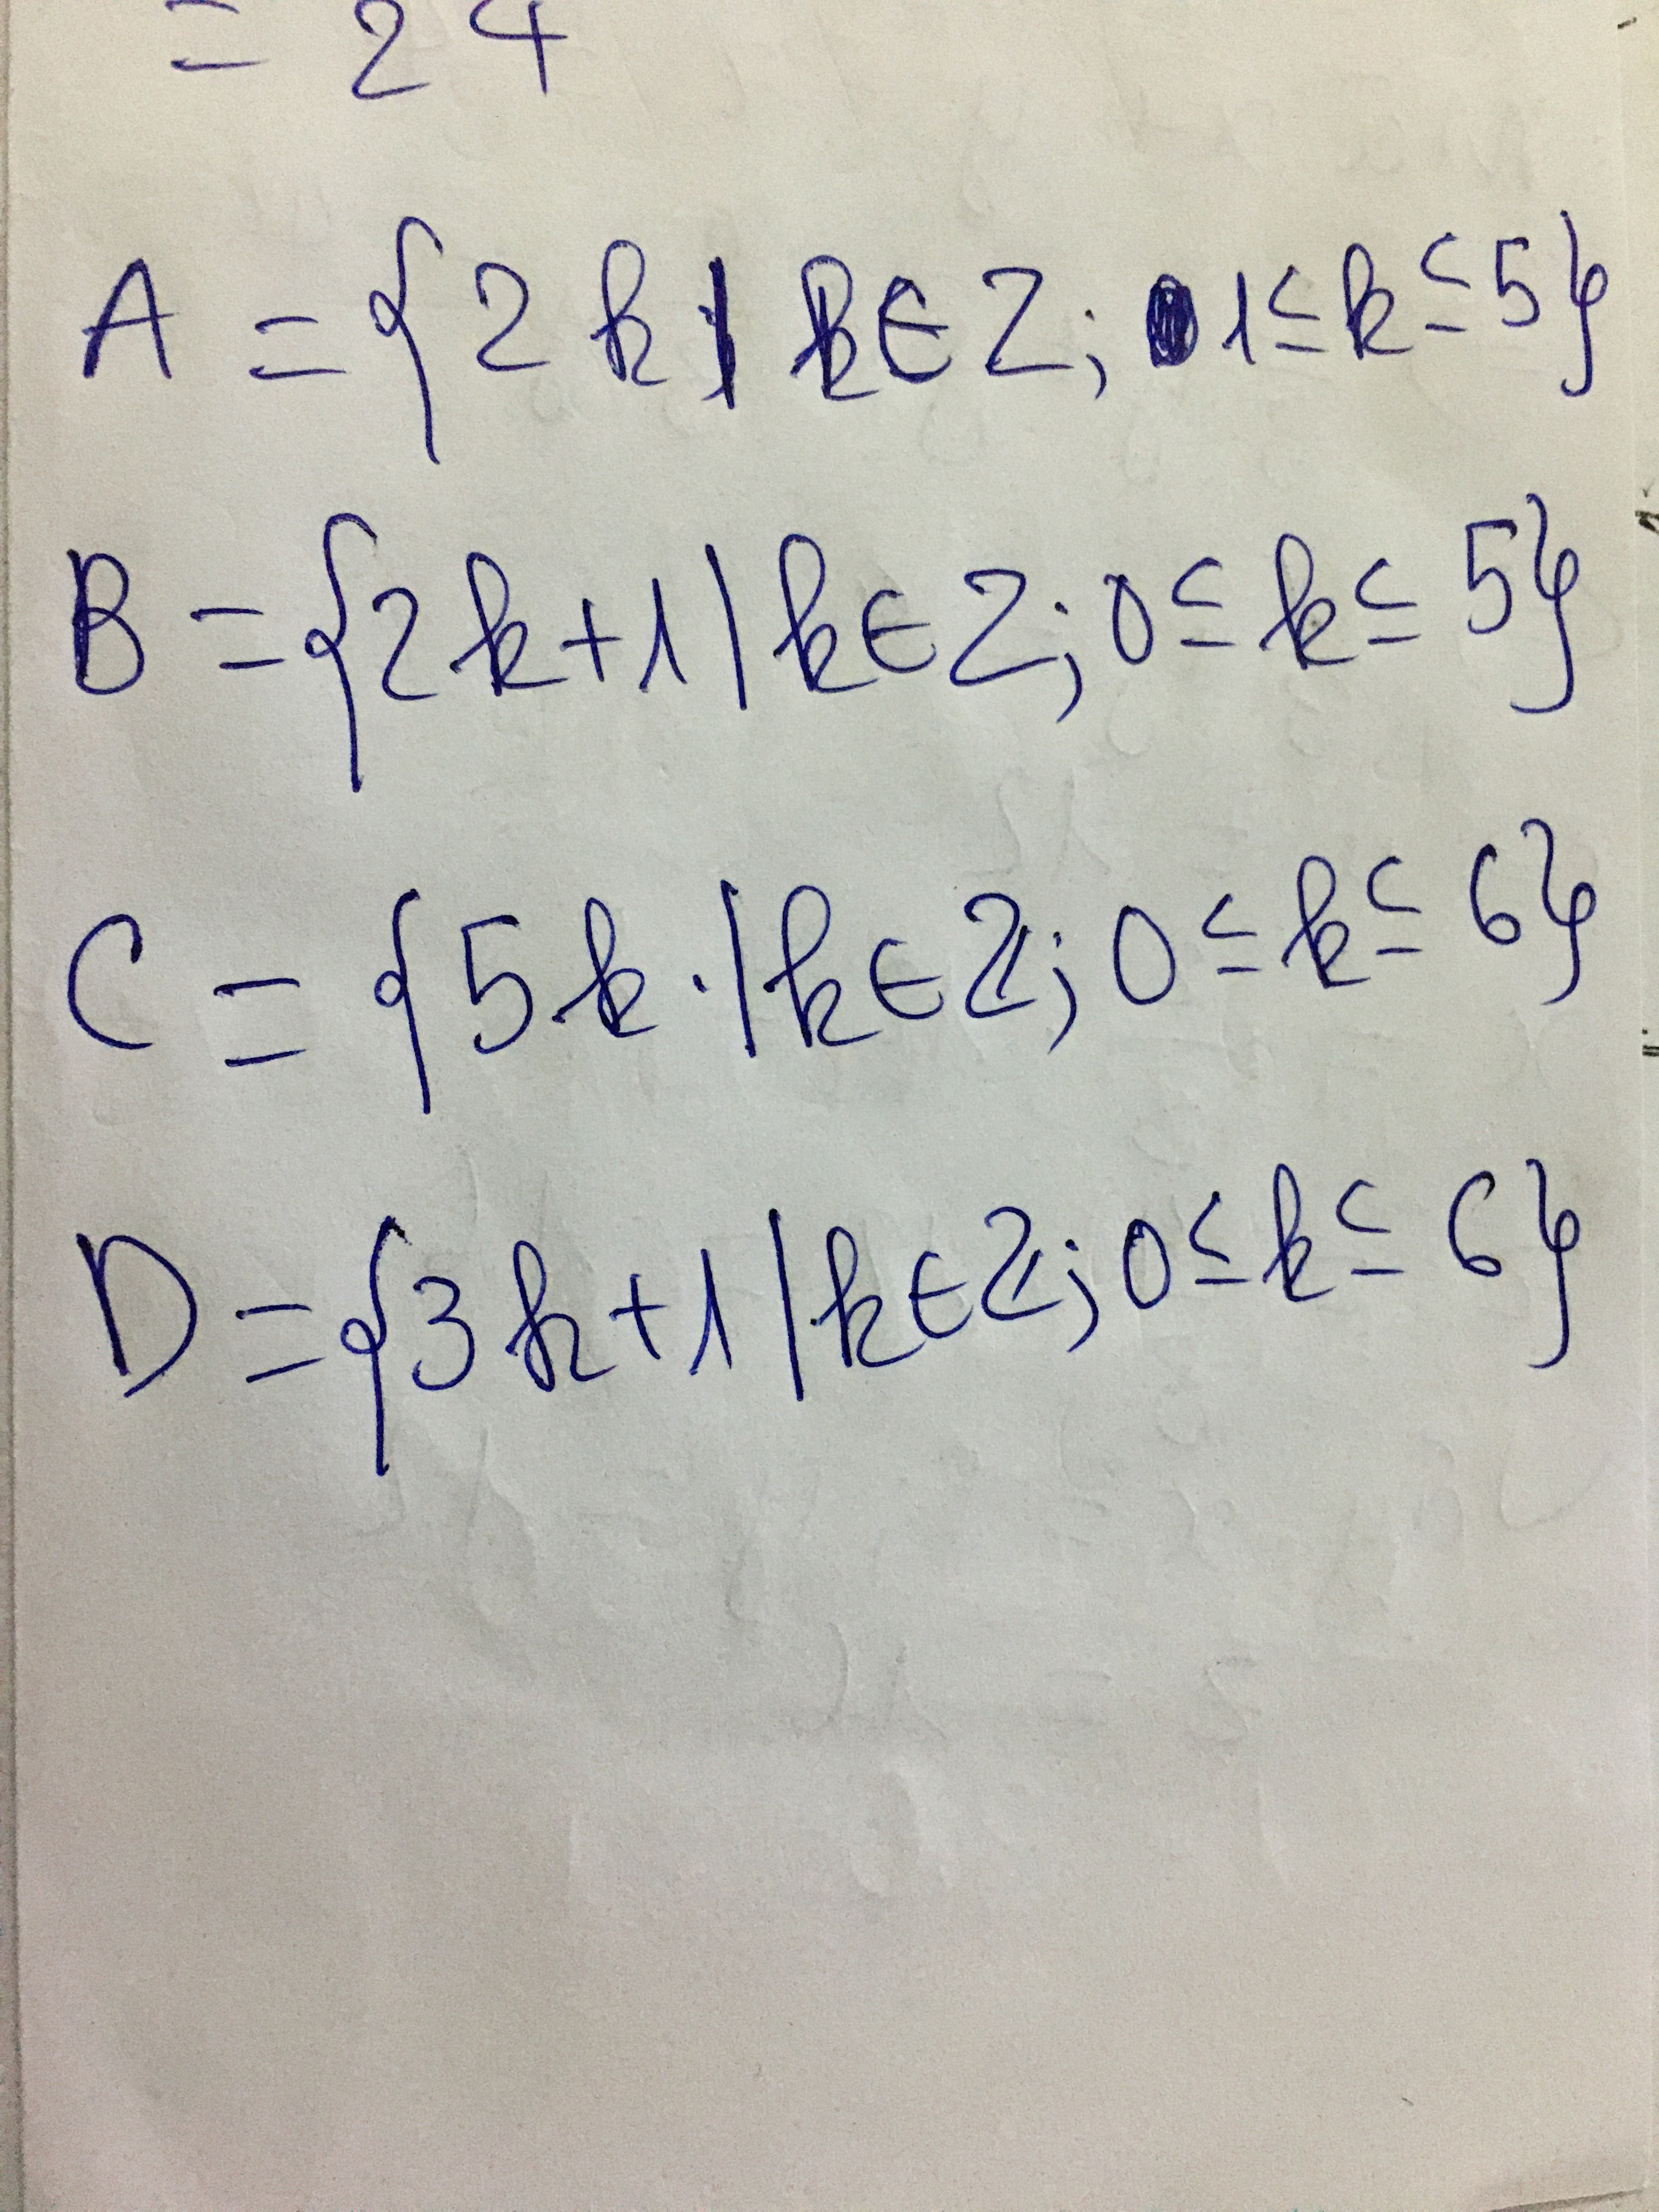 = 24
A = {2k | k∈Z; 1≤k≤5}
B = {2k+1 | k∈Z; 0≤k≤5}
C = {5k | k∈ℤ; 0≤k≤6}
D = {3k+1 | k∈ℤ; 0≤k≤6}